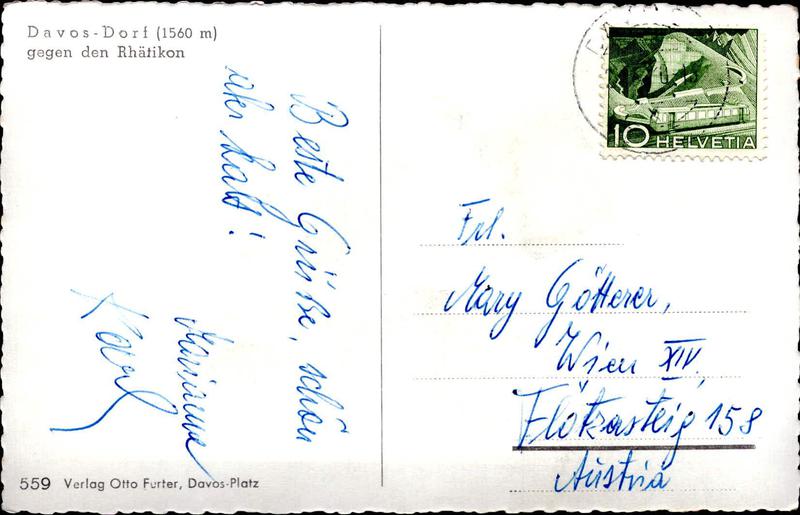 Davos-Dorf (1560 m)
gegen den Rhätikon
Beste Grüße, schön
sehr kalt!
Marianne
Karl
559 Verlag Otto Furter, Davos-Platz
10 HELVETIA
Frl.
Mary Götterer,
Wien XIV,
Flötzersteig 158
Austria